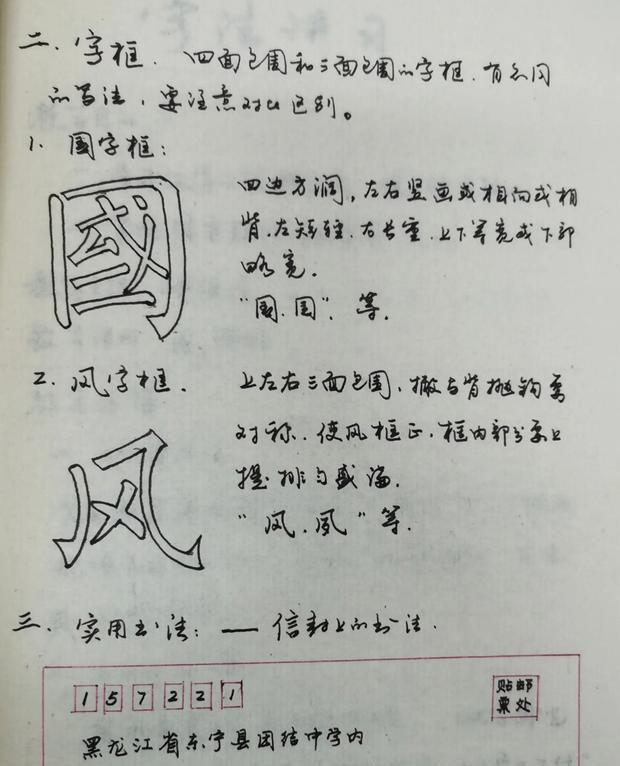 二、字框. 四面包围和三面包围的字框, 有不同
的写法, 要注意对比区别。
1. 國字框:
國
四边方润, 左右竖画或相向或相
背. 左短轻. 右长重. 上下等宽或下部
略宽.
“国. 图”. 等.
2. 风字框.
风
上左右三面包围, 撇与背抛钩要
对称. 使风框正. 框内部分靠上
提 排匀 满.
“风. 凰” 等.
三. 实用书法: —— 信封上的书法.
1 5 7 2 2 1
贴邮
票处
黑龙江省东宁县团结中学内